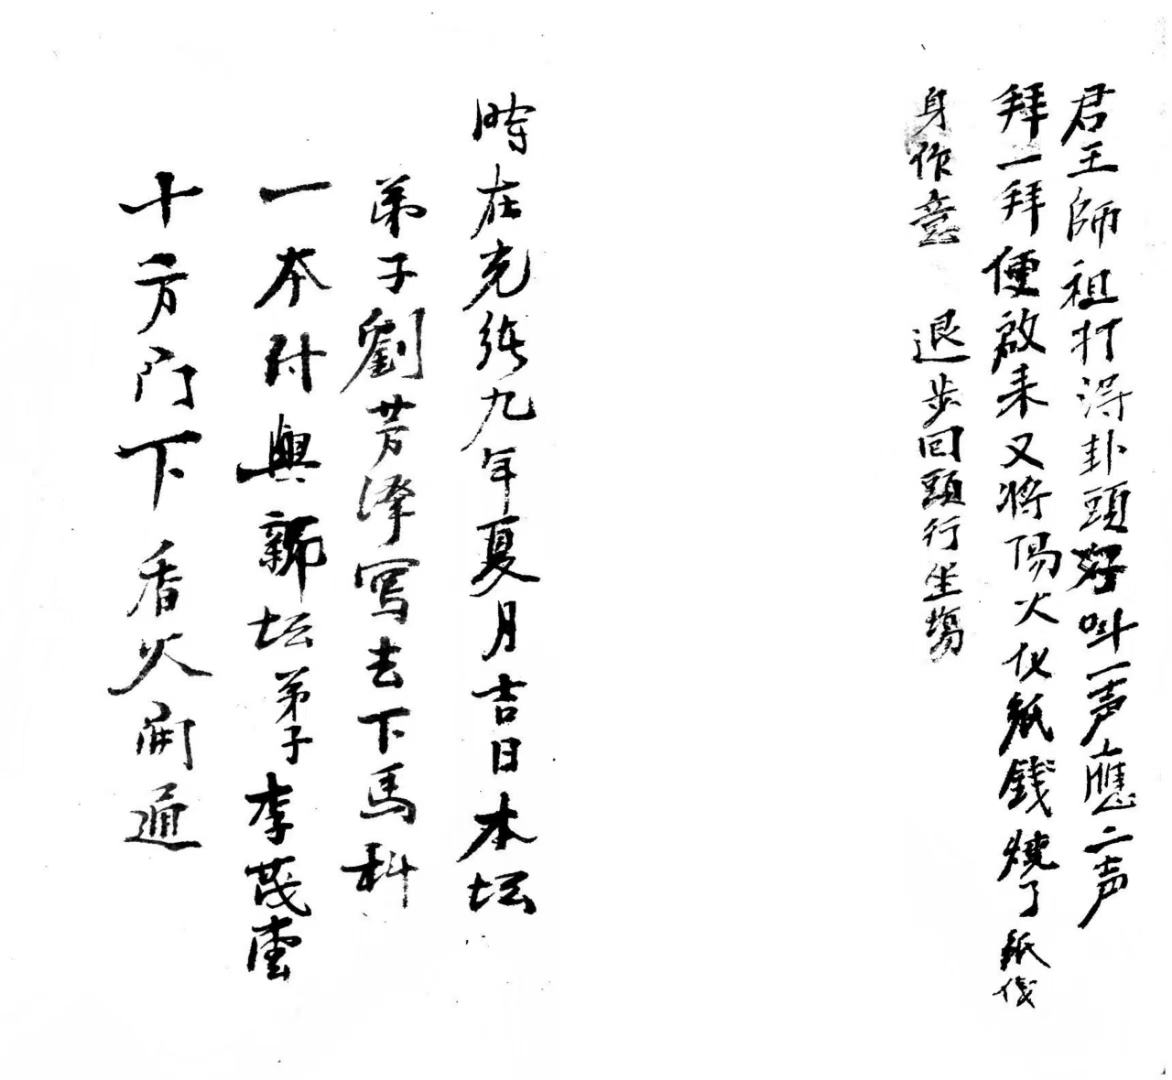 君王師祖打淂卦頭好叫一声應二声
拜一拜便啟来又将陽火化紙錢燒了紙伐
身作意　退步回頭行坐塲
時在光绪九年夏月吉日本坛
弟子劉芳泽写去下馬科
一本付與新坛弟子李茂雲
十方門下香火開通